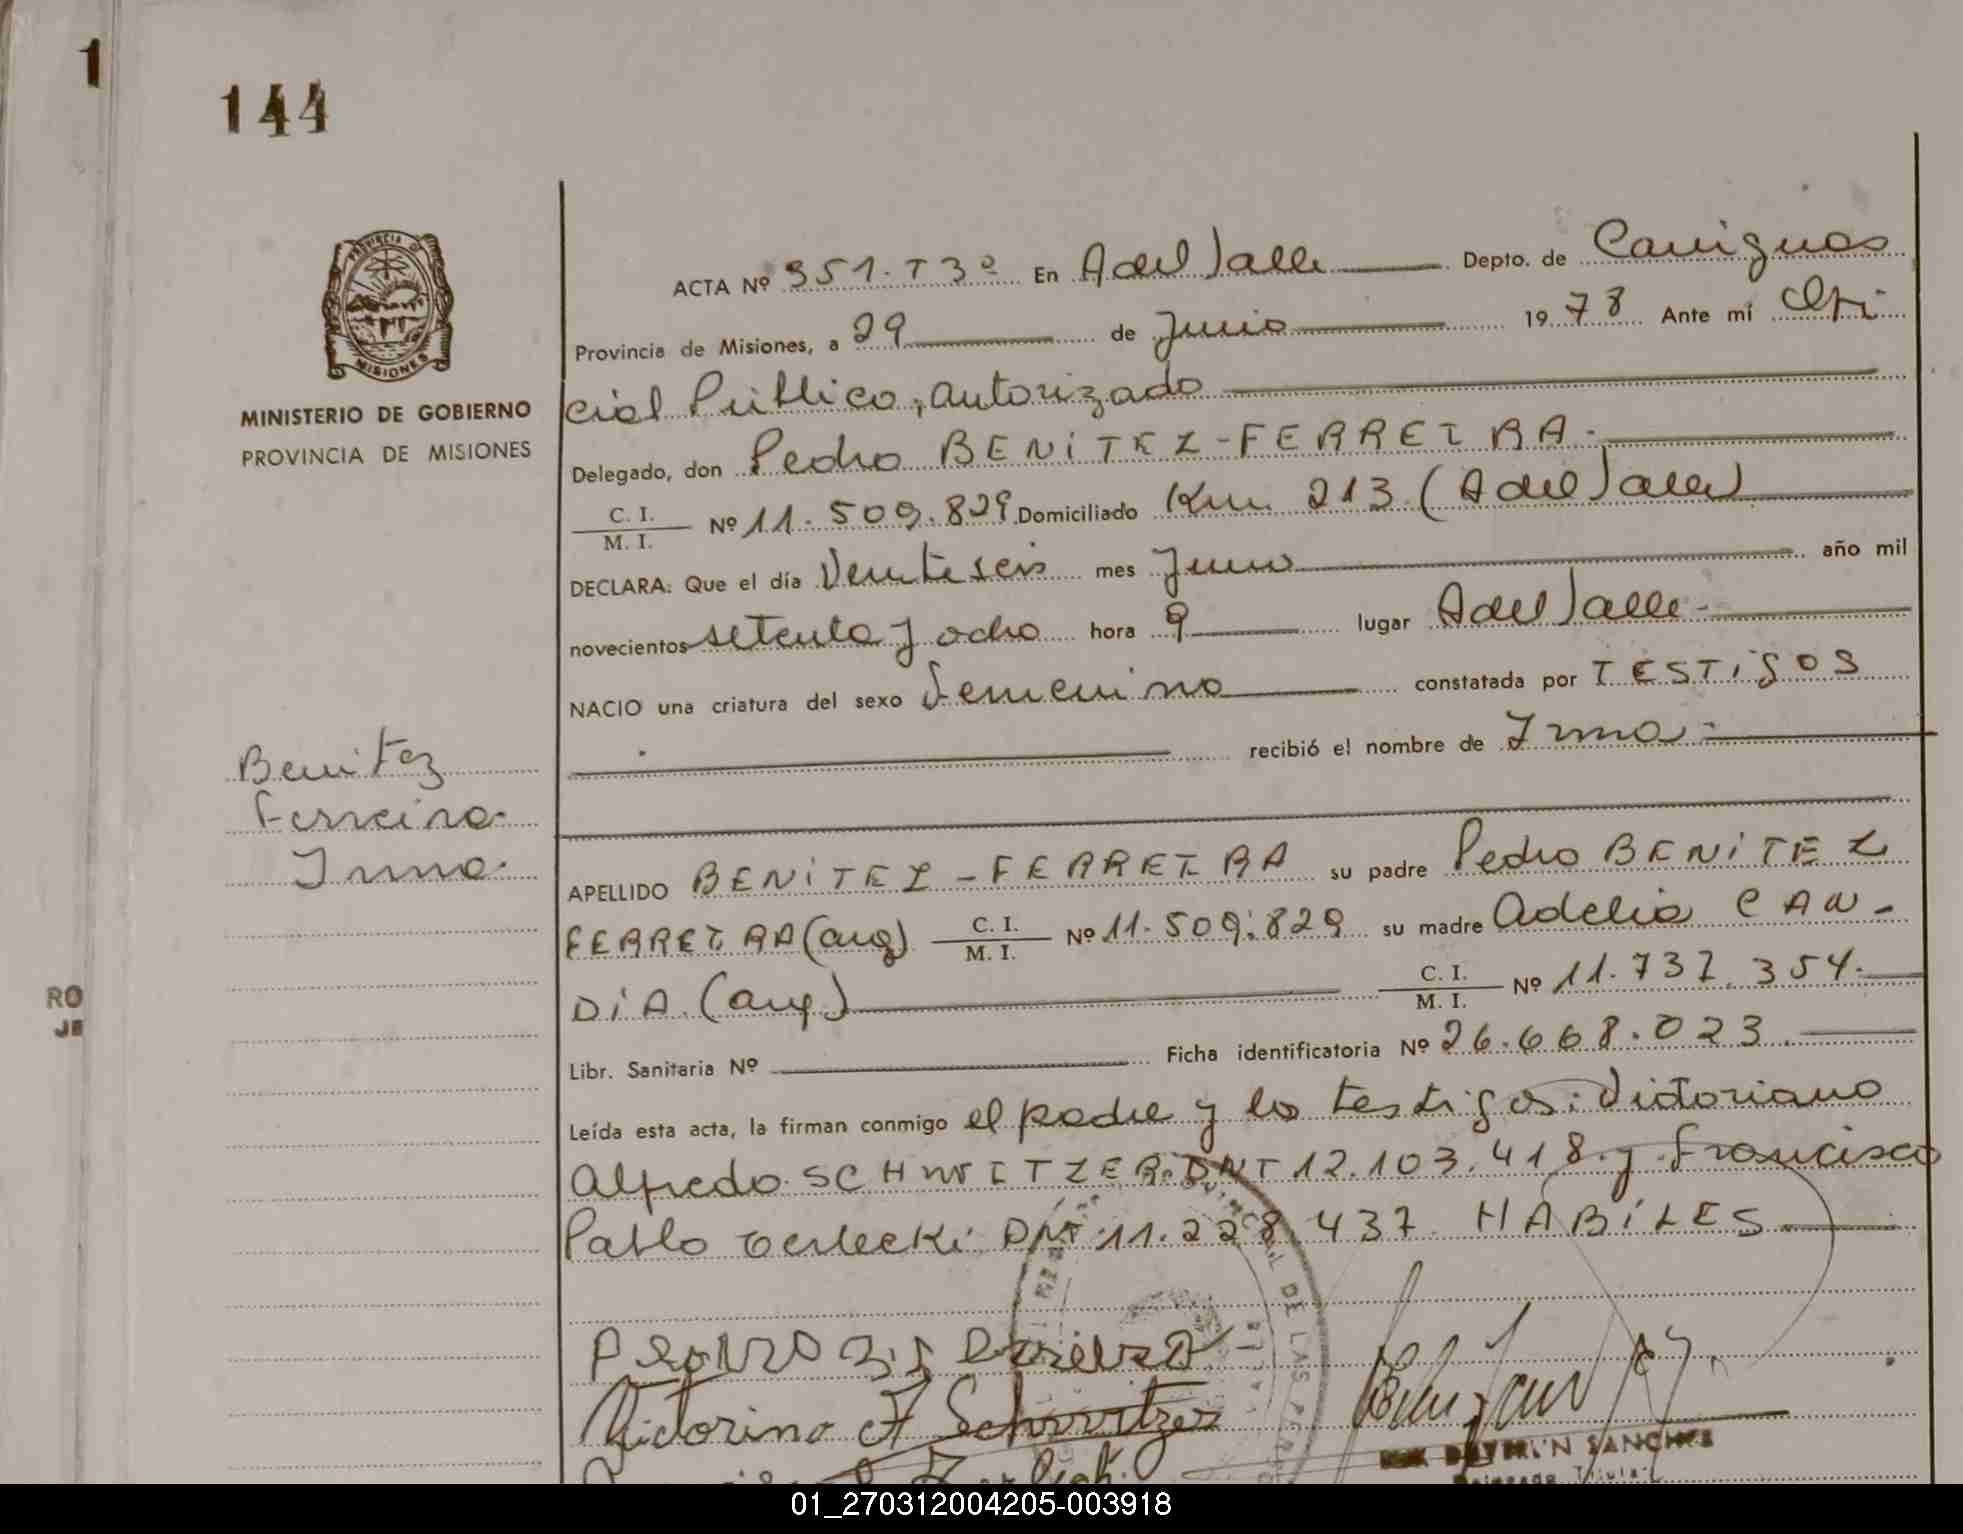 1
144
PROVINCIA DE
MISIONES
MINISTERIO DE GOBIERNO
PROVINCIA DE MISIONES
ACTA Nº 351.T3º En A del Valle Depto. de Cainguas
Provincia de Misiones, a 29 de Junio 1978 Ante mí Ofi
cial Público, autorizado
Delegado, don Pedro BENITEZ-FERREIRA.
C. I.
M. I. Nº 11.509.829 Domiciliado Km. 213 (A del Valle)
DECLARA: Que el día Veintiseis mes Junio año mil
novecientos setenta y ocho hora 9 lugar A del Valle-
NACIO una criatura del sexo Femenino constatada por TESTIGOS
recibió el nombre de Irma-
Benitez
Ferreira-
Irma.
APELLIDO BENITEZ-FERREIRA su padre Pedro BENITEZ
FERREIRA (arg) C. I.
M. I. Nº 11.509.829 su madre Adelia CAN-
DIA. (arg) C. I.
M. I. Nº 11.737.354.
RO
JE
Libr. Sanitaria Nº Ficha identificatoria Nº 26.668.023.
Leída esta acta, la firman conmigo el padre y los testigos: Victoriano
Alfredo SCHWITZER. DNI 12.103.418. y Francisco
Pablo Zerlecki DNI 11.228.437. HABILES
Victorino A Schwitzer
SANCHEZ
Titular
01_270312004205-003918